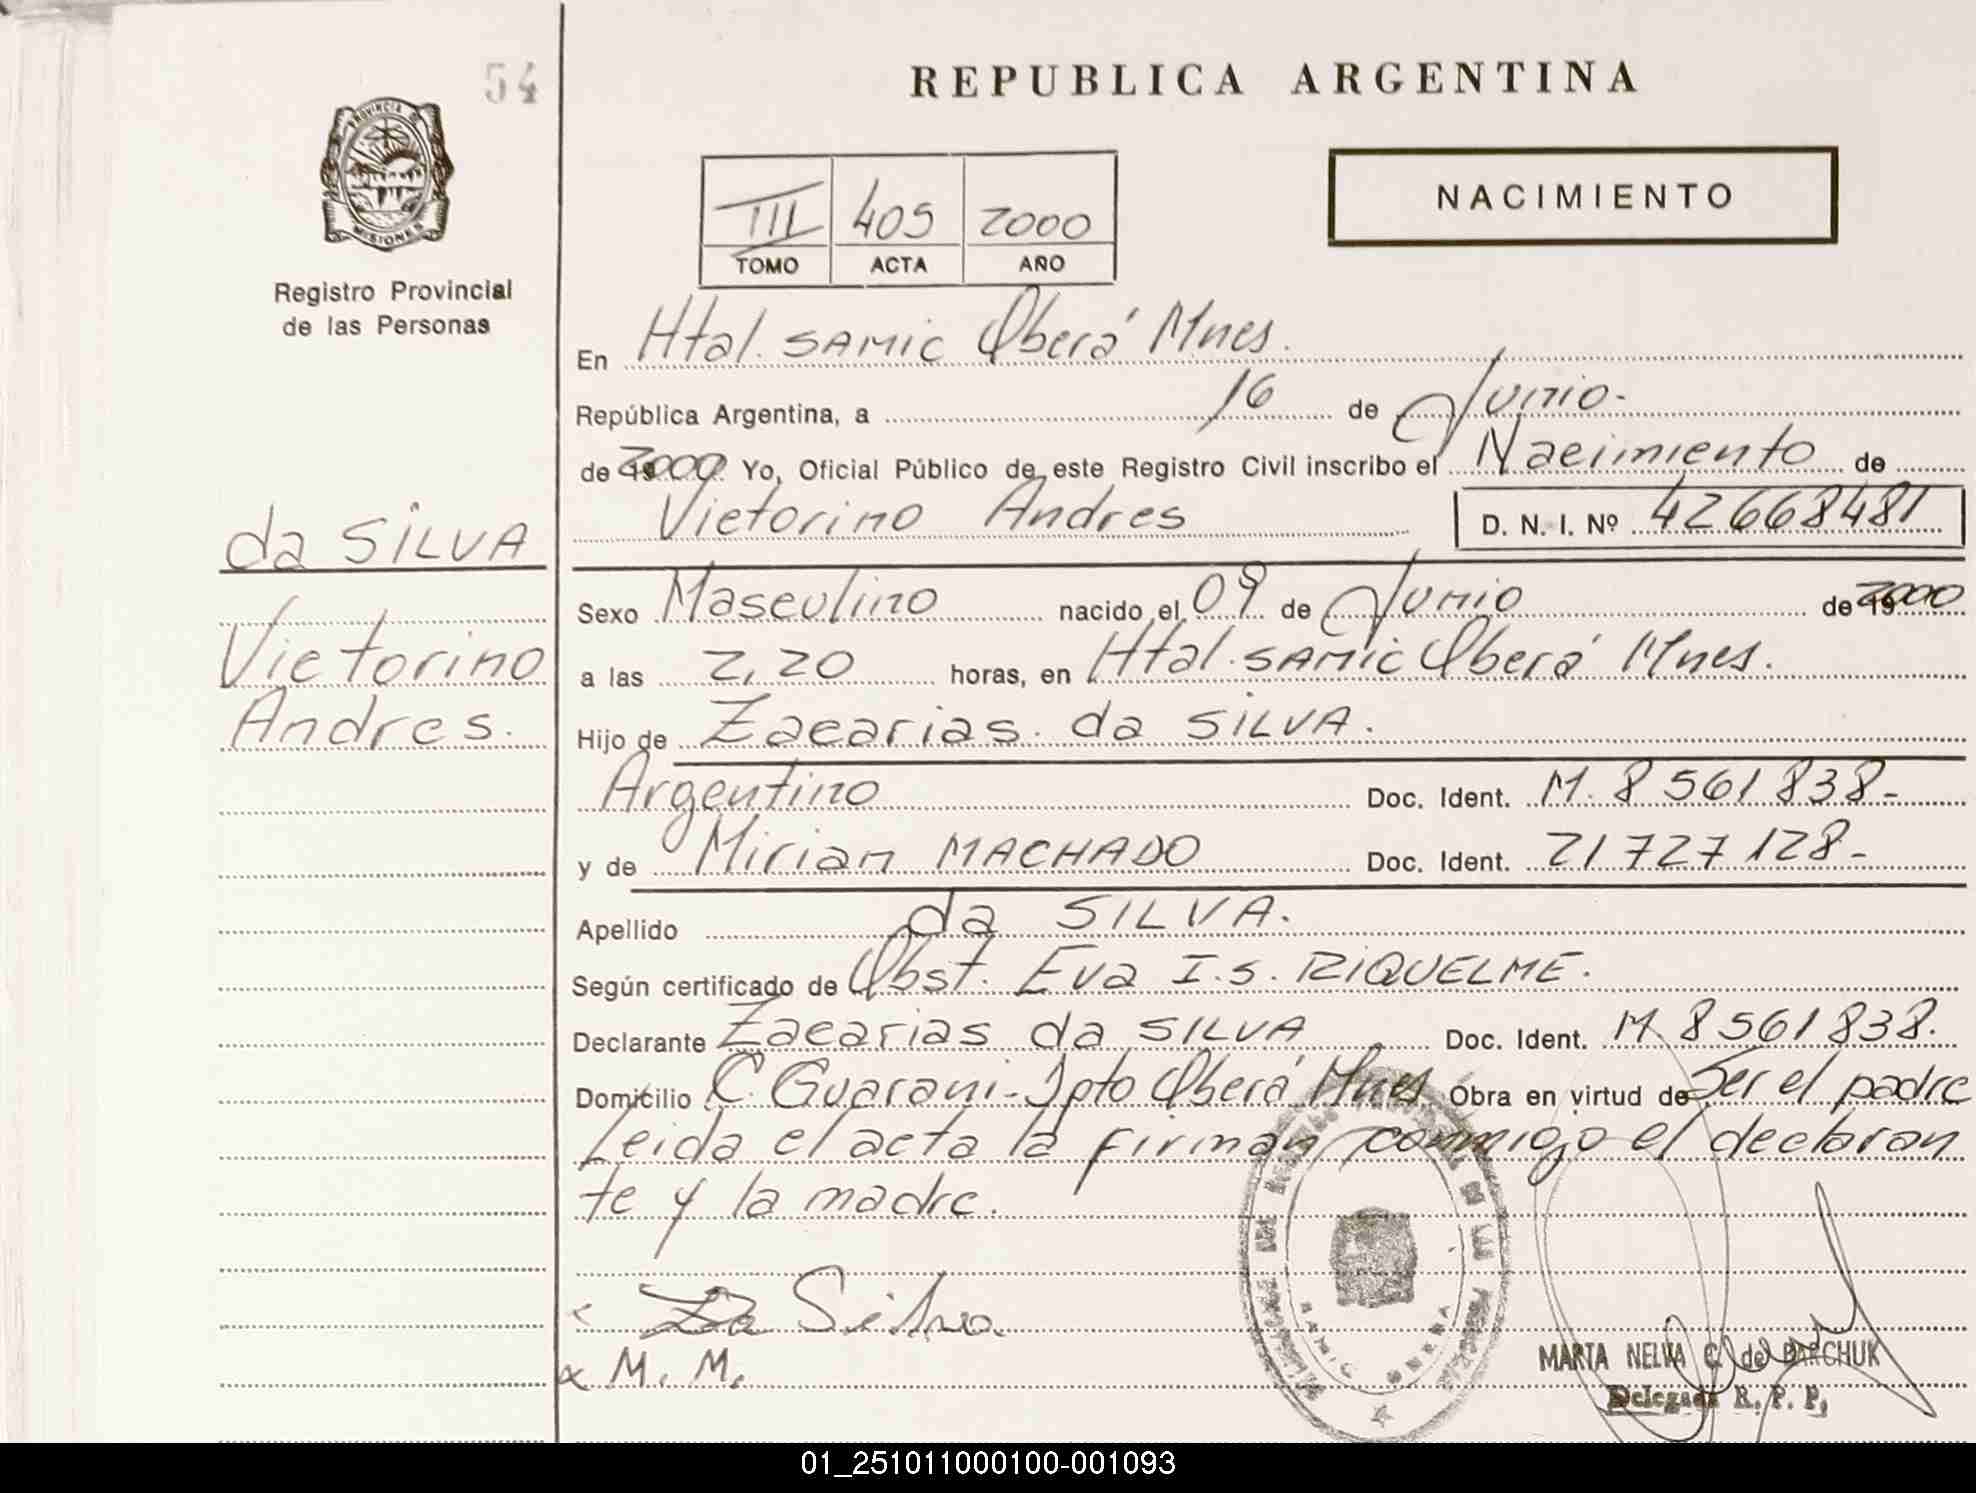 54
REPUBLICA ARGENTINA
PROVINCIA DE MISIONES
Registro Provincial
de las Personas
III 405 2000
TOMO ACTA AÑO
NACIMIENTO
En Htal. SAMIC Oberá Mnes.
República Argentina, a 16 de Junio.
de 2000 Yo, Oficial Público de este Registro Civil inscribo el Nacimiento de
Victorino Andres D. N. I. Nº 42668481
da SILVA
Victorino
Andres.
Sexo Masculino nacido el 09 de Junio de 2000
a las 2,20 horas, en Htal. SAMIC Oberá Mnes.
Hijo de Zacarias da SILVA.
Argentino Doc. Ident. M. 8561838-
y de Mirian MACHADO Doc. Ident. 21727128-
Apellido da SILVA.
Según certificado de Obst. Eva I.S. RIQUELME.
Declarante Zacarias da SILVA Doc. Ident. M 8561838.
Domicilio C. Guarani-Dpto Oberá Mnes Obra en virtud de Ser el padre
Leida el acta la firman conmigo el declaran
te y la madre.
Da Silva
M. M.
SAMIC OBERA
MARTA NELVA C. de BARCHUK
Delegada R. P. P.
01_251011000100-001093